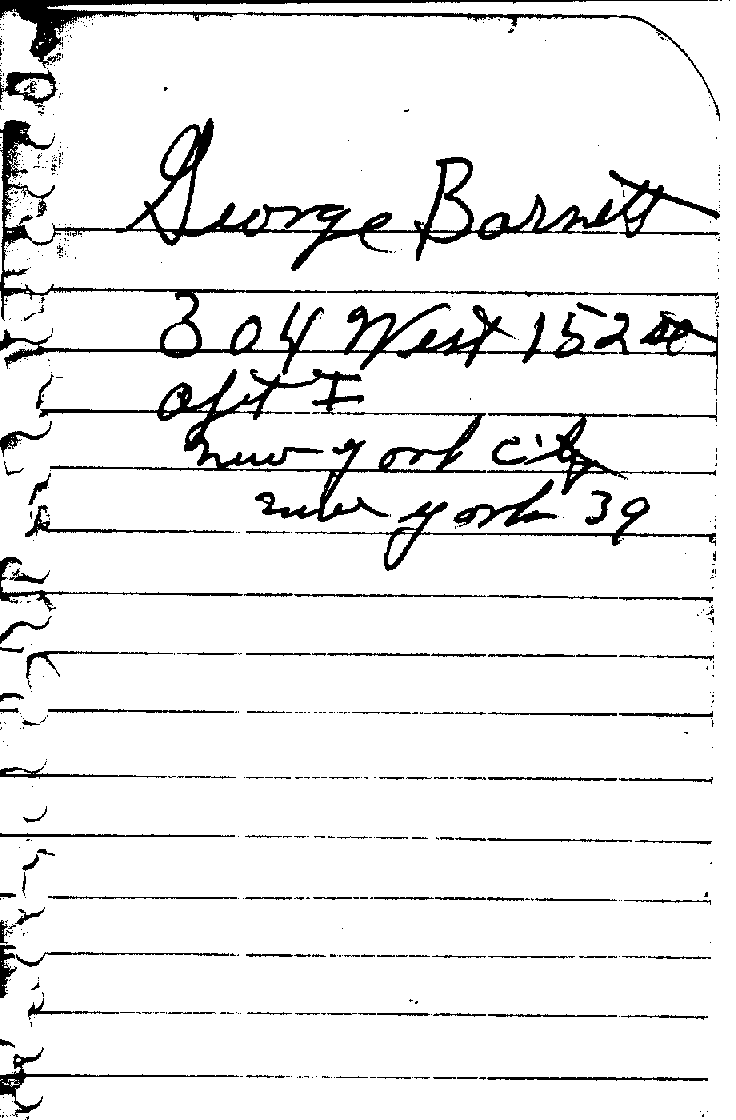 George Barnett
304 West 152
apt I
new york city
new york 39